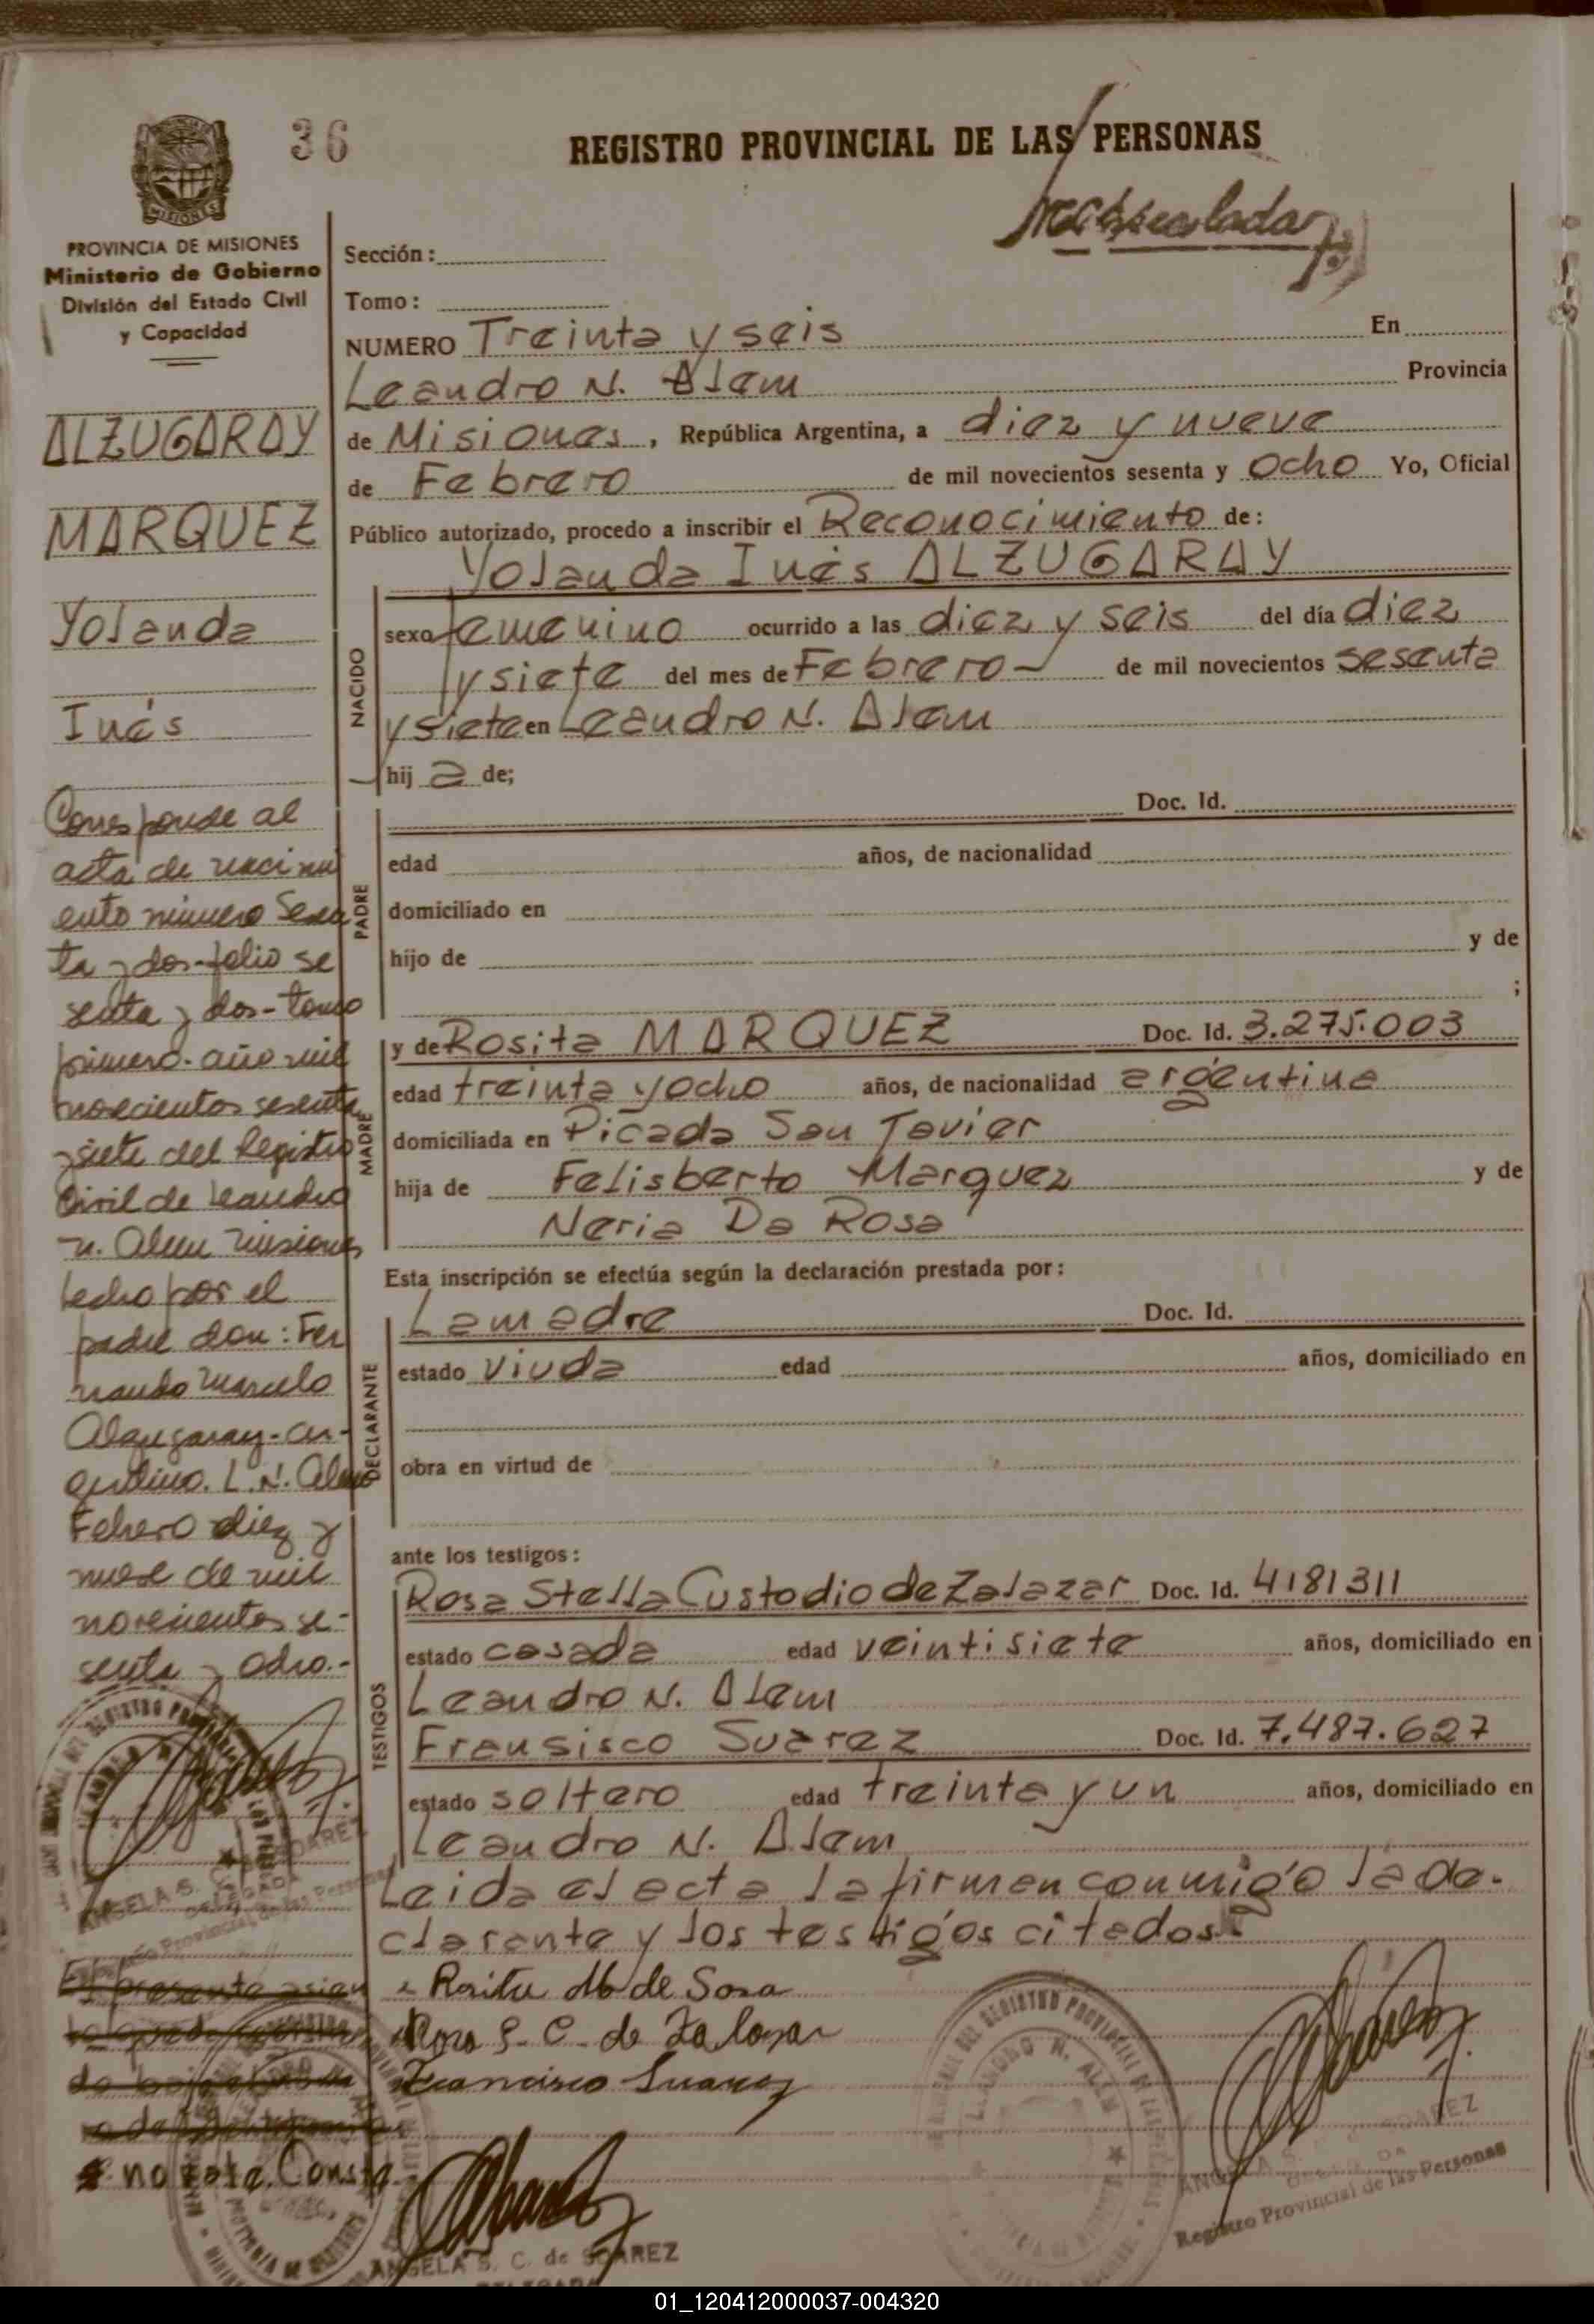 36
REGISTRO PROVINCIAL DE LAS PERSONAS
MISIONES
PROVINCIA DE MISIONES
Ministerio de Gobierno
División del Estado Civil
y Capacidad
ALZUGARAY
MARQUEZ
Yolanda
Inés
Corresponde al
acta de nacimi
ento número Sesen
ta y dos-folio se
senta y dos-tomo
primero-año mil
novecientos sesenta
y siete del Registro
Civil de Leandro
N. Alem Misiones
hecho por el
padre don: Fer
nando Marcelo
Alzugaray-ar-
gentino. L.N. Alem
Febrero diez y
nueve de mil
novecientos se-
senta y ocho.-
El presente asien
no vale. Conste
Sección:
Tomo:
NUMERO Treinta y seis En
Leandro N. Alem Provincia
de Misiones, República Argentina, a diez y nueve
de Febrero de mil novecientos sesenta y Ocho Yo, Oficial
Público autorizado, procedo a inscribir el Reconocimiento de:
Yolanda Inés ALZUGARAY
NACIDO
sexo femenino ocurrido a las diez y seis del día diez
y siete del mes de Febrero de mil novecientos sesenta
y siete en Leandro N. Alem
hij a de;
PADRE
Doc. Id.
edad años, de nacionalidad
domiciliado en
hijo de y de
;
MADRE
y de Rosita MARQUEZ Doc. Id. 3.275.003
edad treinta y ocho años, de nacionalidad argentina
domiciliada en Picada San Javier
hija de Felisberto Marquez y de
Neria Da Rosa
Esta inscripción se efectúa según la declaración prestada por:
DECLARANTE
La madre Doc. Id.
estado viuda edad años, domiciliado en
obra en virtud de
ante los testigos:
TESTIGOS
Rosa Stella Custodio de Zalazar Doc. Id. 4181311
estado casada edad veintisiete años, domiciliado en
Leandro N. Alem
Fransisco Suarez Doc. Id. 7.487.627
estado soltero edad treinta y un años, domiciliado en
Leandro N. Alem
Leida el acta la firman conmigo la de-
clarante y los testigos citados.
Rosita M de Sosa
Rosa S. C. de Zalazar
Francisco Suarez
LEANDRO N. ALEM
Registro Provincial de las Personas
ANGELA S. C. de SOAREZ
01_120412000037-004320